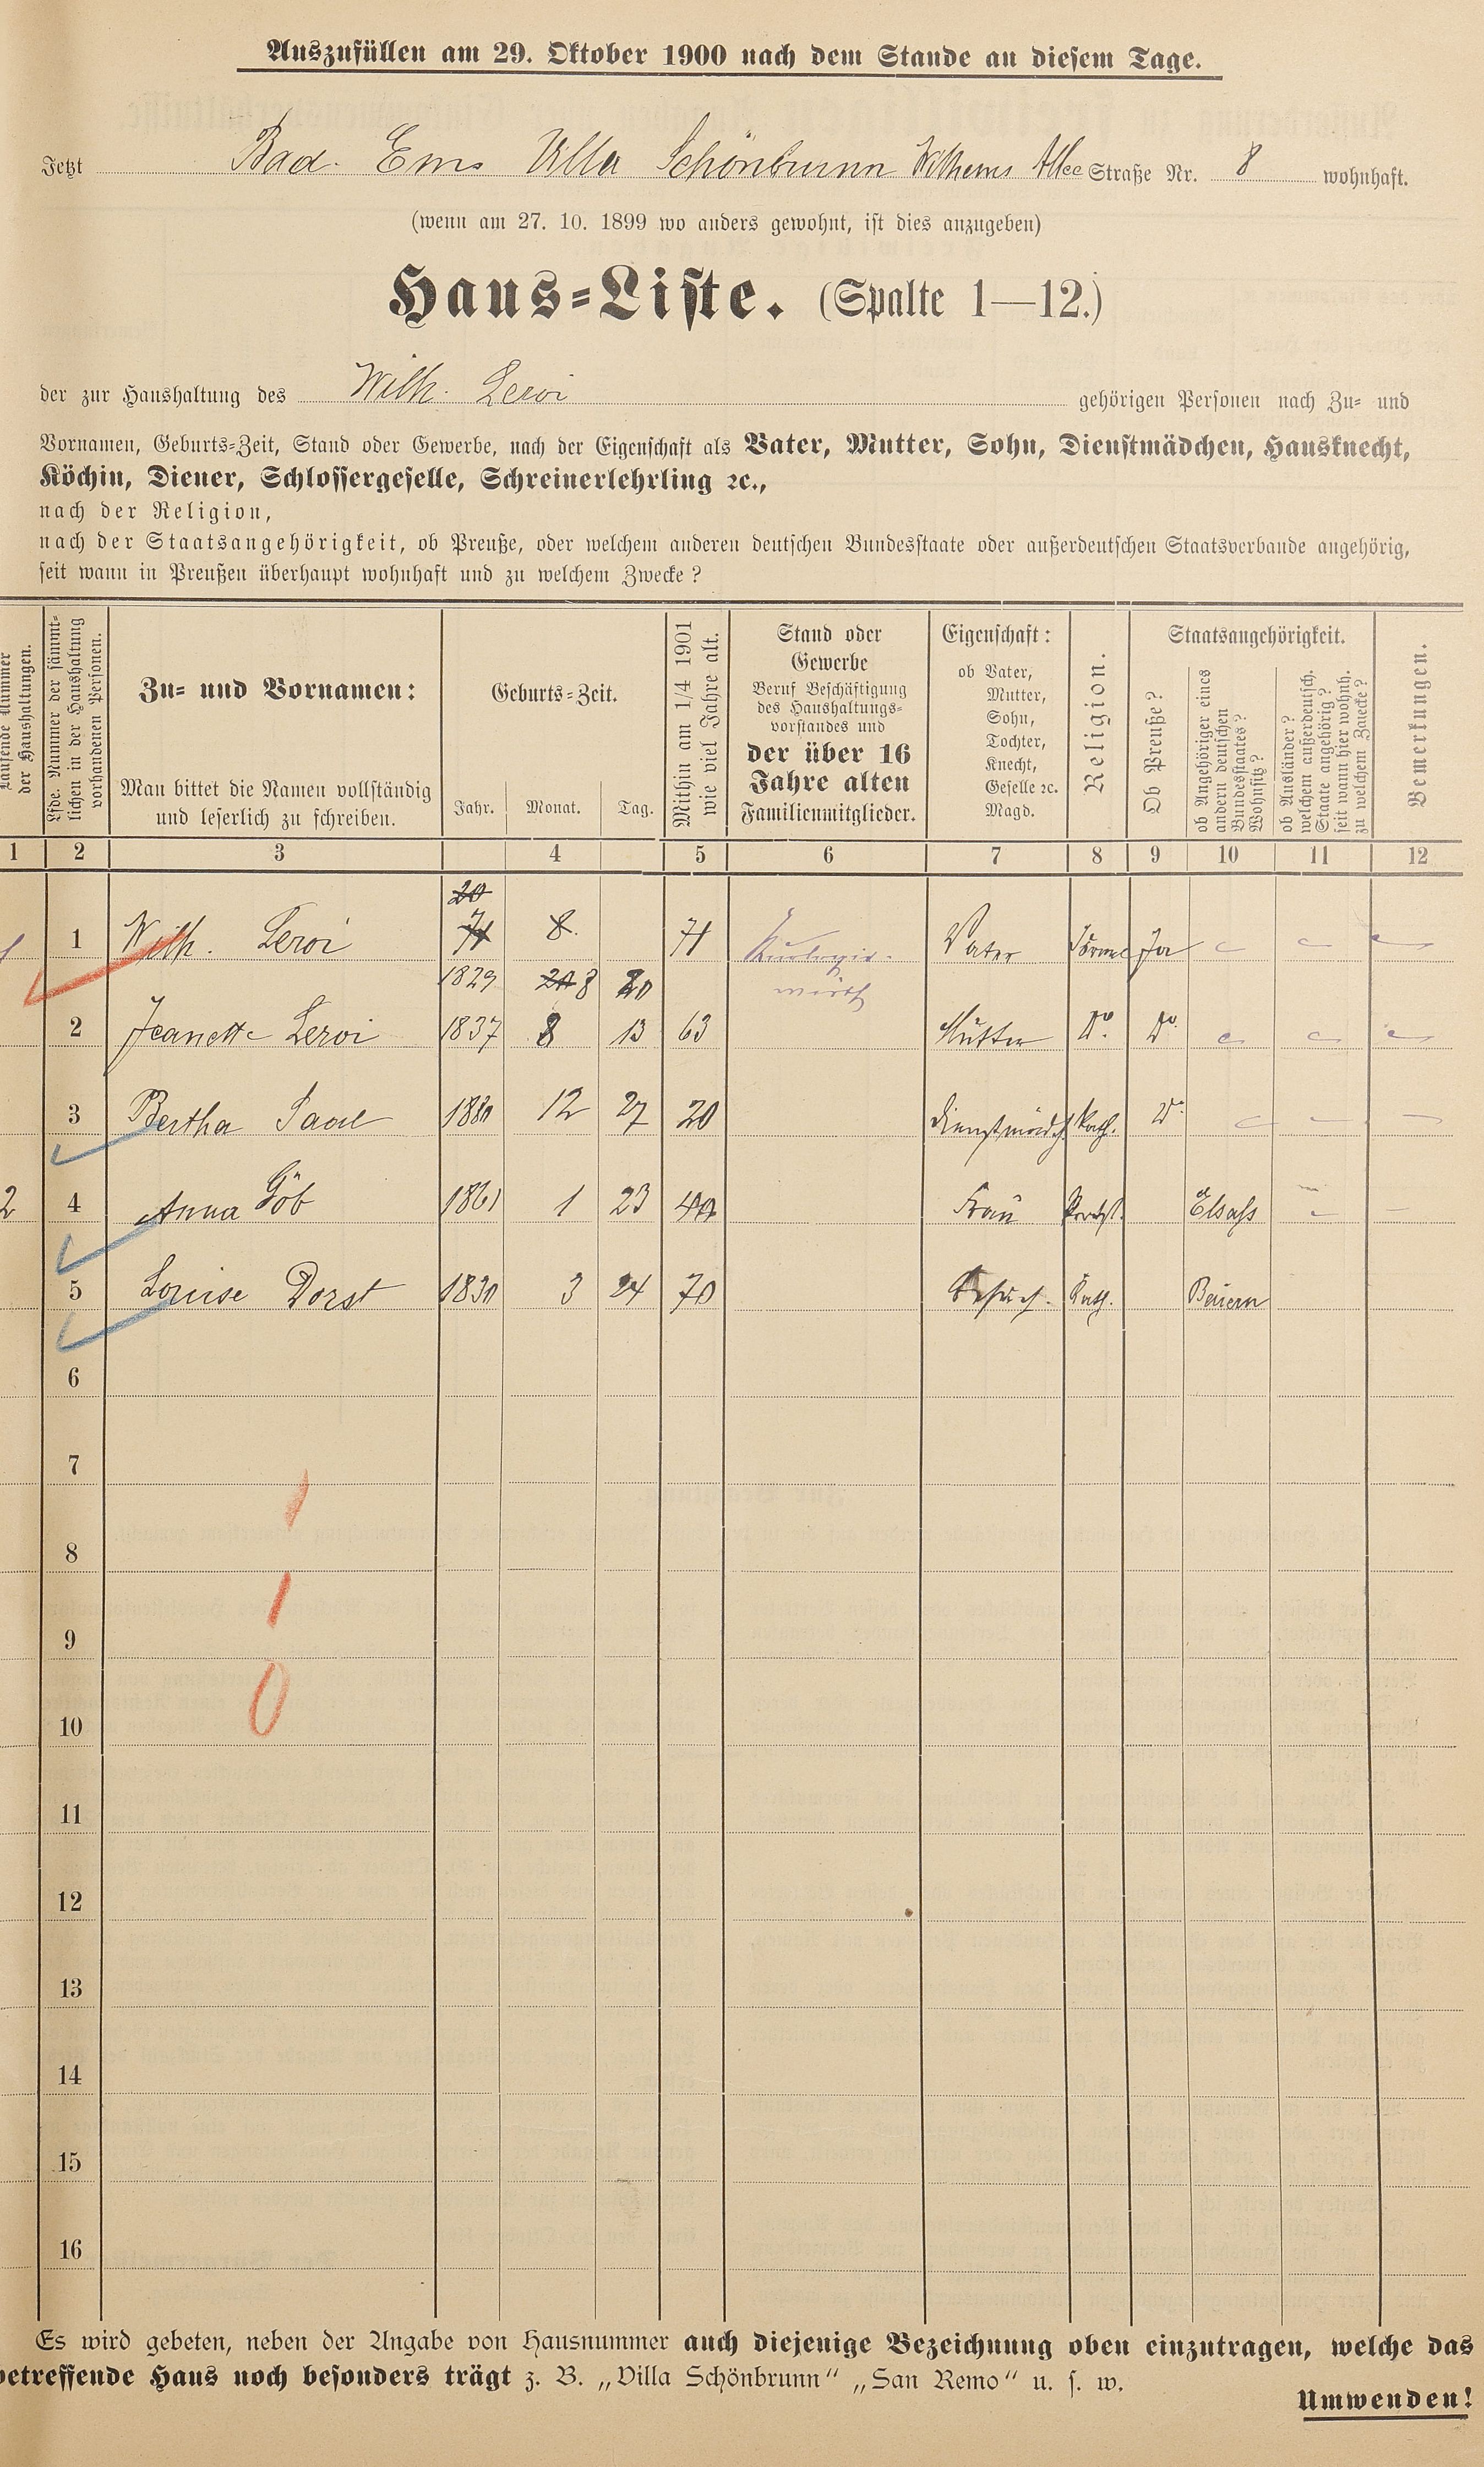 Auszufüllen am 29. Oktober 1900 nach dem Stande an diesem Tage.
Jetzt Bad. Ems Villa Schönbrunn Wilhelms Allee Straße Nr. 8 wohnhaft.
(wenn am 27. 10. 1899 wo anders gewohnt, ist dies anzugeben)
Haus=Liste. (Spalte 1—12.)
der zur Haushaltung des Wilh. Leroi gehörigen Personen nach Zu= und
Vornamen, Geburts=Zeit, Stand oder Gewerbe, nach der Eigenschaft als Vater, Mutter, Sohn, Dienstmädchen, Hausknecht,
Köchin, Diener, Schlossergeselle, Schreinerlehrling ꝛc.,
nach der Religion,
nach der Staatsangehörigkeit, ob Preuße, oder welchem anderen deutschen Bundesstaate oder außerdeutschen Staatsverbande angehörig,
seit wann in Preußen überhaupt wohnhaft und zu welchem Zwecke?
Laufende Nummer
der Haushaltungen.
Lfde. Nummer der sämmt=
lichen in der Haushaltung
vorhandenen Personen.
Zu= und Vornamen:
Man bittet die Namen vollständig
und leserlich zu schreiben.
Geburts=Zeit.
Jahr. Monat. Tag.
Mithin am 1/4 1901
wie viel Jahre alt.
Stand oder
Gewerbe
Beruf Beschäftigung
des Haushaltungs=
vorstandes und
der über 16
Jahre alten
Familienmitglieder.
Eigenschaft:
ob Vater,
Mutter,
Sohn,
Tochter,
Knecht,
Geselle ꝛc.
Magd.
Religion.
Staatsangehörigkeit.
Ob Preuße?
ob Angehöriger eines
andern deutschen
Bundesstaates?
Wohnsitz?
ob Ausländer?
welchem außerdeutsch.
Staate angehörig?
seit wann hier wohnh.
zu welchem Zwecke?
Bemerkungen.
1 2 3 4 5 6 7 8 9 10 11 12
20
1 Wilh. Leroi 71 8. 71 Vater Ja
1829 8 20
2 Jeanette Leroi 1837 8 13 63 Mutter do. do.
3 Bertha Saal 1880 12 27 20 Dienstmädch Kath. do.
2 4 Anna Göb 1861 1 23 40 Frau Protest. Elsaß
5 Louise Dorst 1830 3 24 70 Besuch. Kath. Baiern
6
7
1
8
1
9
0
10
11
12
13
14
15
16
Es wird gebeten, neben der Angabe von Hausnummer auch diejenige Bezeichnung oben einzutragen, welche das
betreffende Haus noch besonders trägt z. B. „Villa Schönbrunn“ „San Remo“ u. s. w.
Umwenden!